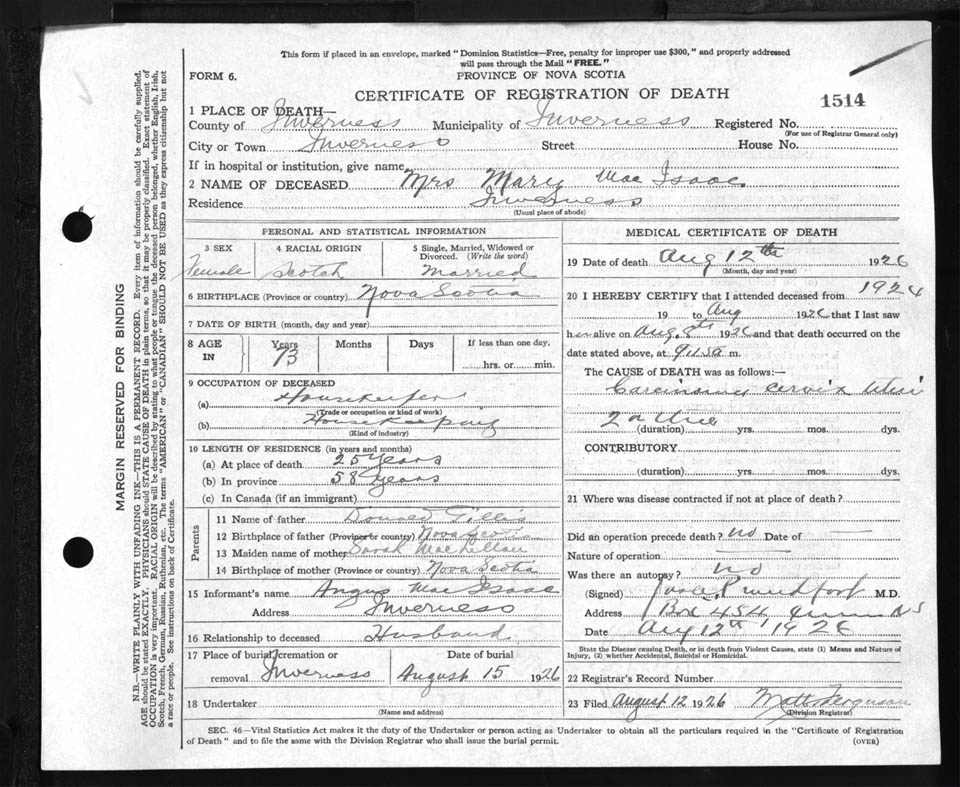 This form if placed in an envelope, marked "Dominion Statistics—Free, penalty for improper use $300," and properly addressed
will pass through the Mail "FREE."
FORM 6.
PROVINCE OF NOVA SCOTIA
CERTIFICATE OF REGISTRATION OF DEATH
1514
1 PLACE OF DEATH—
County of Inverness Municipality of Inverness Registered No.
(For use of Registrar General only)
City or Town Inverness Street House No.
If in hospital or institution, give name
2 NAME OF DECEASED Mrs Mary Mac Isaac
Residence Inverness
(Usual place of abode)
PERSONAL AND STATISTICAL INFORMATION
3 SEX 4 RACIAL ORIGIN 5 Single, Married, Widowed or Divorced. (Write the word)
Female Scotch Married
6 BIRTHPLACE (Province or country) Nova Scotia
7 DATE OF BIRTH (month, day and year)
8 AGE IN Years Months Days If less than one day,
73 hrs. or min.
9 OCCUPATION OF DECEASED
(a) Housekeeper
(Trade or occupation or kind of work)
(b) Housekeeping
(Kind of industry)
10 LENGTH OF RESIDENCE (in years and months)
(a) At place of death 25 years
(b) In province 58 years
(c) In Canada (if an immigrant)
Parents
11 Name of father Donald Gillis
12 Birthplace of father (Province or country) Nova Scotia
13 Maiden name of mother Sarah MacLellan
14 Birthplace of mother (Province or country) Nova Scotia
15 Informant's name Angus Mac Isaac
Address Inverness
16 Relationship to deceased Husband
17 Place of burial, cremation or removal Inverness Date of burial August 15 1926
18 Undertaker
(Name and address)
MEDICAL CERTIFICATE OF DEATH
19 Date of death Aug 12th 1926
(Month, day and year)
20 I HEREBY CERTIFY that I attended deceased from 1924
19 to Aug 1926 that I last saw
her alive on Aug 8th 1926 and that death occurred on
date stated above, at 9.15 a m.
The CAUSE of DEATH was as follows:—
Carcinoma cervix Uteri
2
(duration) yrs. mos. dys.
CONTRIBUTORY
(duration) yrs. mos. dys.
21 Where was disease contracted if not at place of death?
Did an operation precede death? no Date of —
Nature of operation —
Was there an autopsy? no
(Signed) M.D.
Address Box 454 NS
Date Aug 12th 1926
State the Disease causing Death, or in death from Violent Causes, state (1) Means and Nature of
Injury, (2) whether Accidental, Suicidal or Homicidal.
22 Registrar's Record Number
23 Filed August 12 1926 Matt Ferguson
(Division Registrar)
SEC. 46—Vital Statistics Act makes it the duty of the Undertaker or person acting as Undertaker to obtain all the particulars required in the "Certificate of Registration
of Death" and to file the same with the Division Registrar who shall issue the burial permit.
(OVER)
MARGIN RESERVED FOR BINDING
N.B.—WRITE PLAINLY WITH UNFADING INK—THIS IS A PERMANENT RECORD. Every item of information should be carefully supplied.
AGE should be stated EXACTLY. PHYSICIANS should STATE CAUSE OF DEATH in plain terms, so that it may be properly classified. Exact statement of
OCCUPATION is very important. RACIAL ORIGIN will be described by stating to what people or tongue the deceased person belonged, whether English, Irish,
Scotch, French, German, Russian, Ruthenian, etc. The terms "AMERICAN" or "CANADIAN" SHOULD NOT BE USED as they express citizenship but not
a race or people. See instructions on back of Certificate.